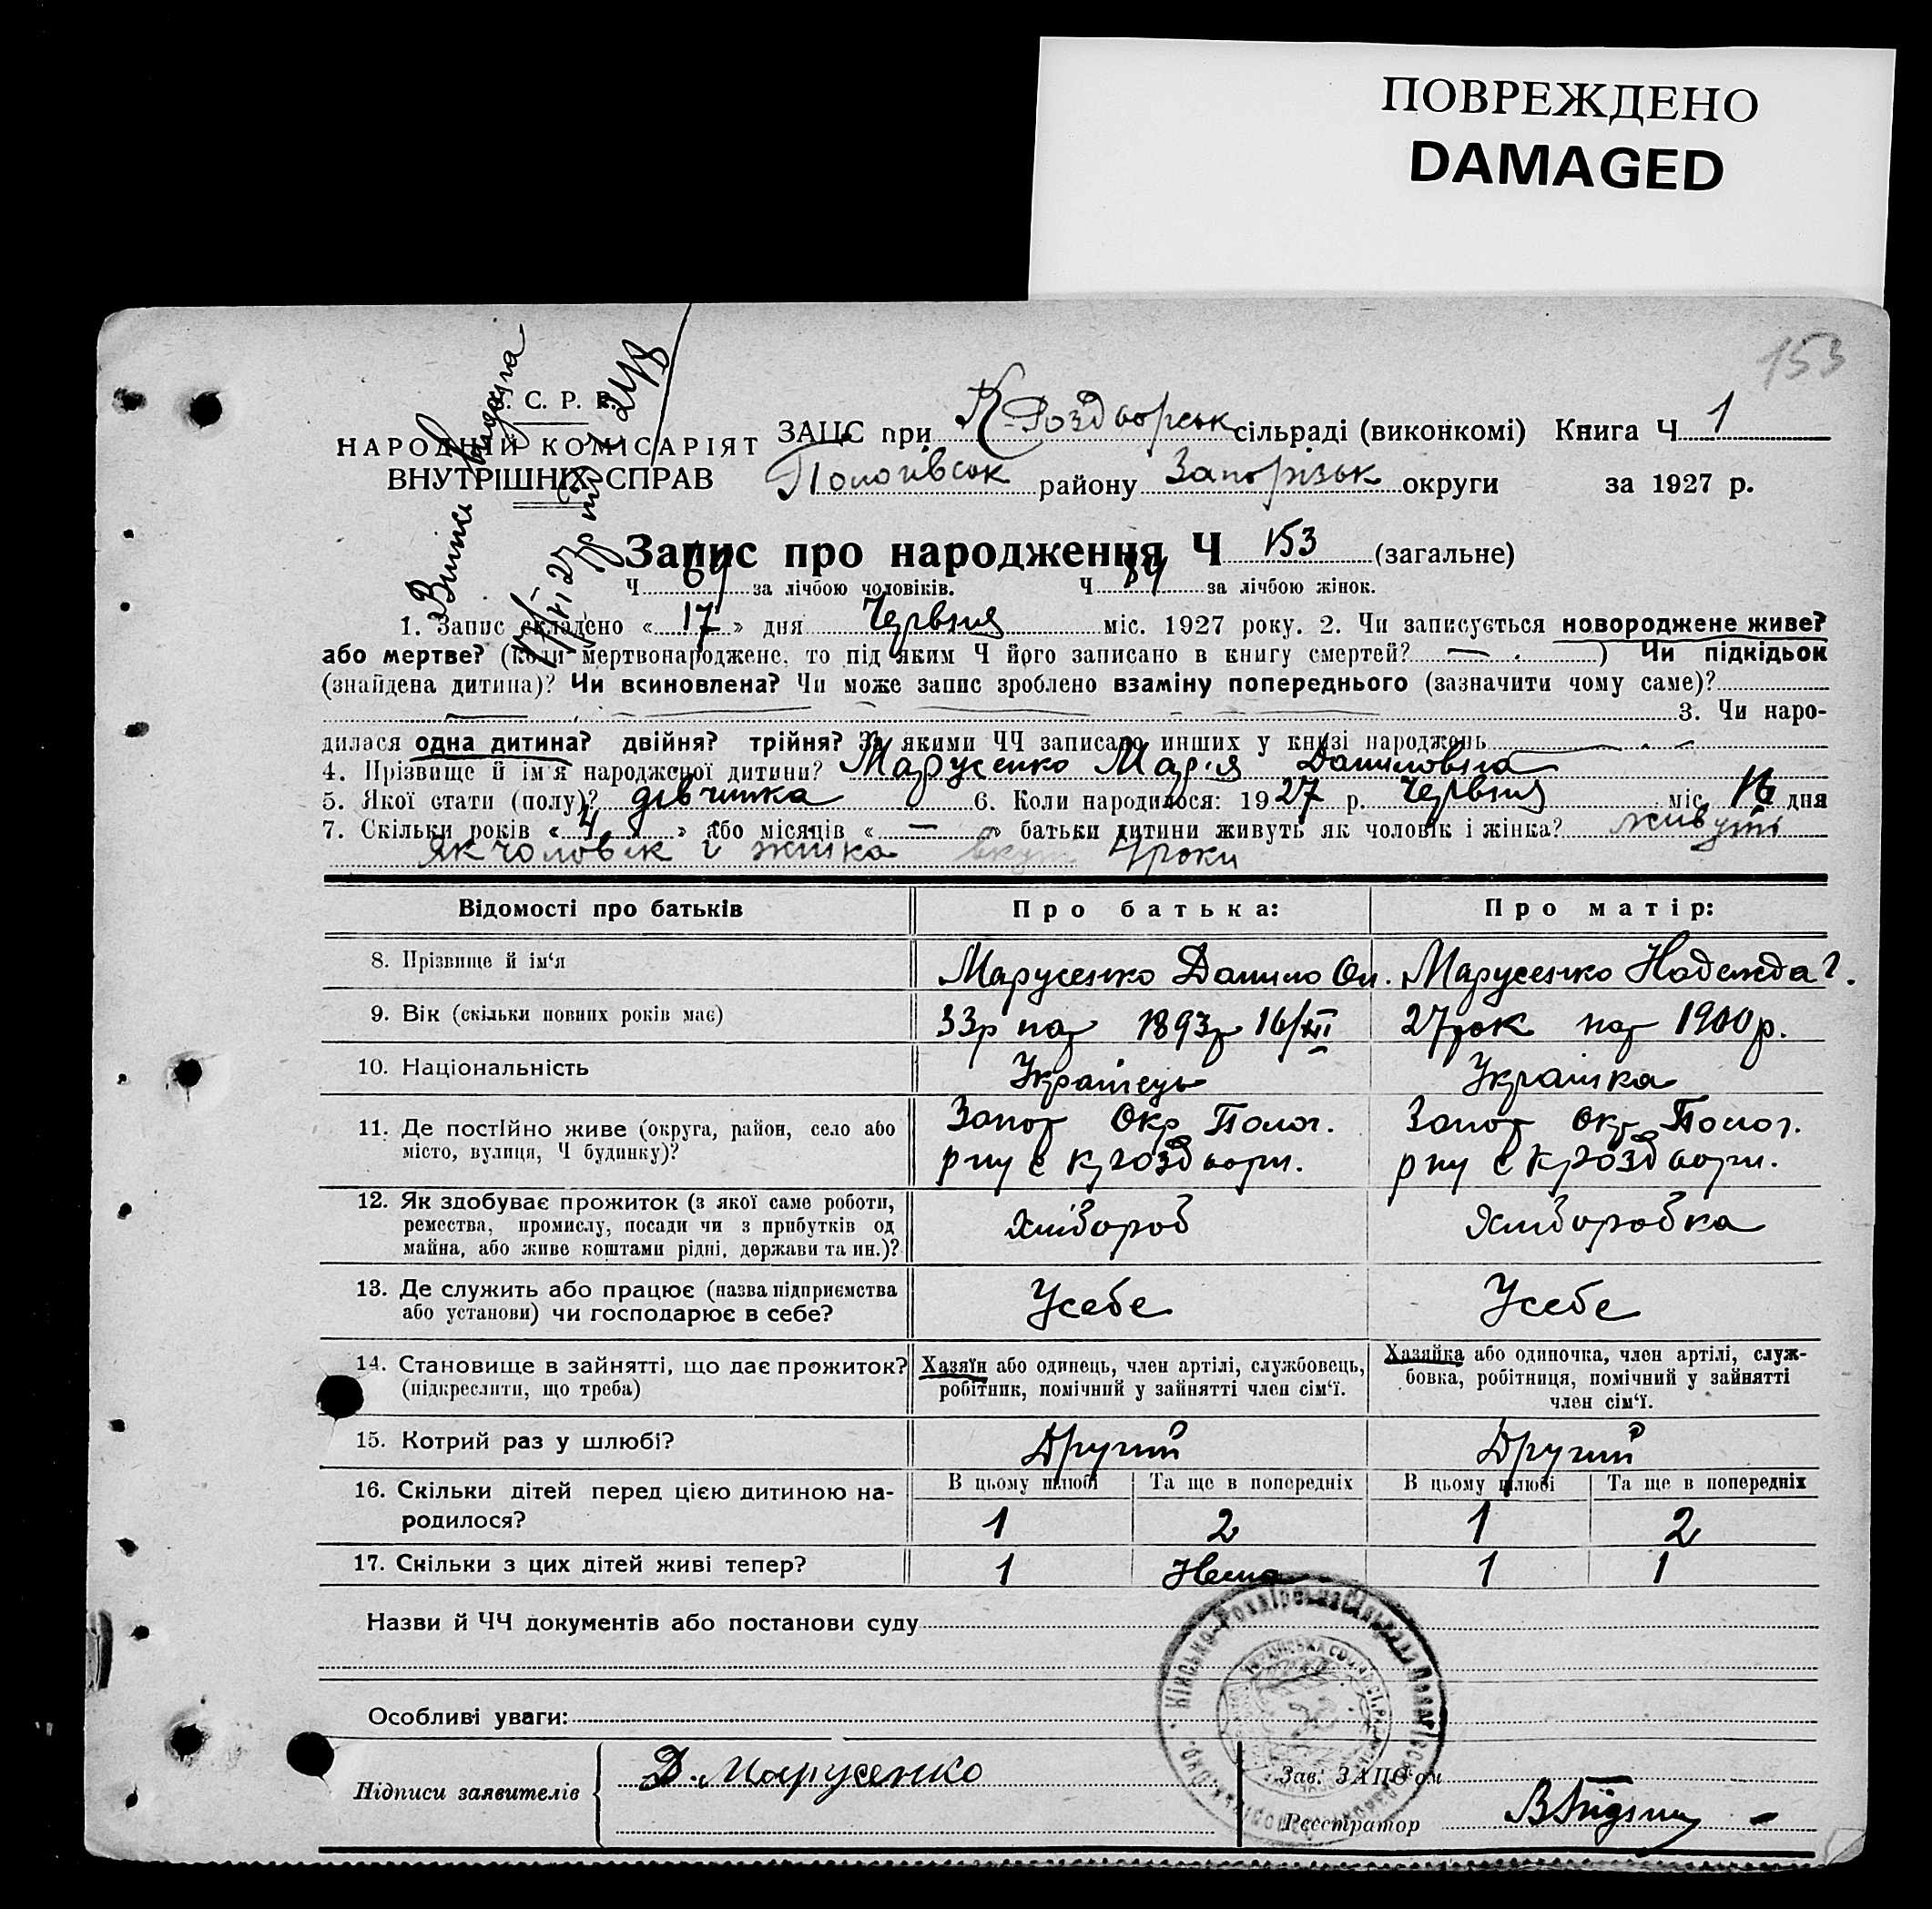 ПОВРЕЖДЕНО
DAMAGED
153
Випись видана
. С. Р. Р.
НАРОДНІЙ КОМІСАРІЯТ
ВНУТРІШНІХ СПРАВ
ЗАЦС при К-Роздворськ сільраді (виконкомі) Книга Ч 1
Пологівськ району Запорізьк округи за 1927 р.
Запис про народження Ч 153 (загальне)
Ч 69 за лічбою чоловіків. Ч 84 за лічбою жінок.
1. Запис складено « 17 » дня Червня міс. 1927 року. 2. Чи записується новороджене живе?
або мертве? (коли мертвонароджене, то під яким Ч його записано в книгу смертей? — ) Чи підкідьок
(знайдена дитина)? Чи всиновлена? Чи може запис зроблено взаміну попереднього (зазначити чому саме)?
3. Чи наро-
дилася одна дитина? двійня? трійня? За якими ЧЧ записано инших у книзі народжень
4. Прізвище й ім'я народженої дитини? Марусенко Марія Даниловна
5. Якої стати (полу)? дівчинка 6. Коли народилося: 1927 р. Червня міс. 16 дня
7. Скільки років « 4 » або місяців « — » батьки дитини живуть як чоловік і жінка? живуть
як чоловік і жінка 4 роки
Відомості про батьків Про батька: Про матір:
8. Прізвище й ім'я Марусенко Данило Ол. Марусенко Надежда Г.
9. Вік (скільки повних років має) 33р нар 1893р 16/XII 27рок нар 1900р.
10. Національність Українець Українка
11. Де постійно живе (округа, район, село або Запор Окр Полог. Запор окр Полог.
місто, вулиця, Ч будинку)? рну с К роздворы. рну с К роздворы.
12. Як здобуває прожиток (з якої саме роботи,
ремества, промислу, посади чи з прибутків од Хлібороб Хліборобка
майна, або живе коштами рідні, держави та ин.)?
13. Де служить або працює (назва підприємства Усебе Усебе
або установи) чи господарює в себе?
14. Становище в зайнятті, що дає прожиток? Хазяїн або одинець, член артілі, службовець, Хазяйка або одиночка, член артілі, служ-
(підкреслити, що треба) робітник, помічний у зайнятті член сім'ї. бовка, робітниця, помічний у зайнятті
член сім'ї.
15. Котрий раз у шлюбі? Другий Другий
16. Скільки дітей перед цією дитиною на- В цьому шлюбі Та ще в попередніх В цьому шлюбі Та ще в попередніх
родилося? 1 2 1 2
17. Скільки з цих дітей живі тепер? 1 Нема 1 1
Назви й ЧЧ документів або постанови суду
Особливі уваги:
Підписи заявителів Д. Марусенко Зав. ЗАЦС'ом
Реєстратор